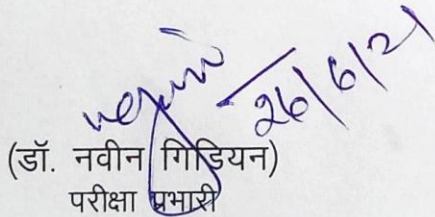 26/6/21
(डॉ. नवीन गिडियन)
परीक्षा प्रभारी